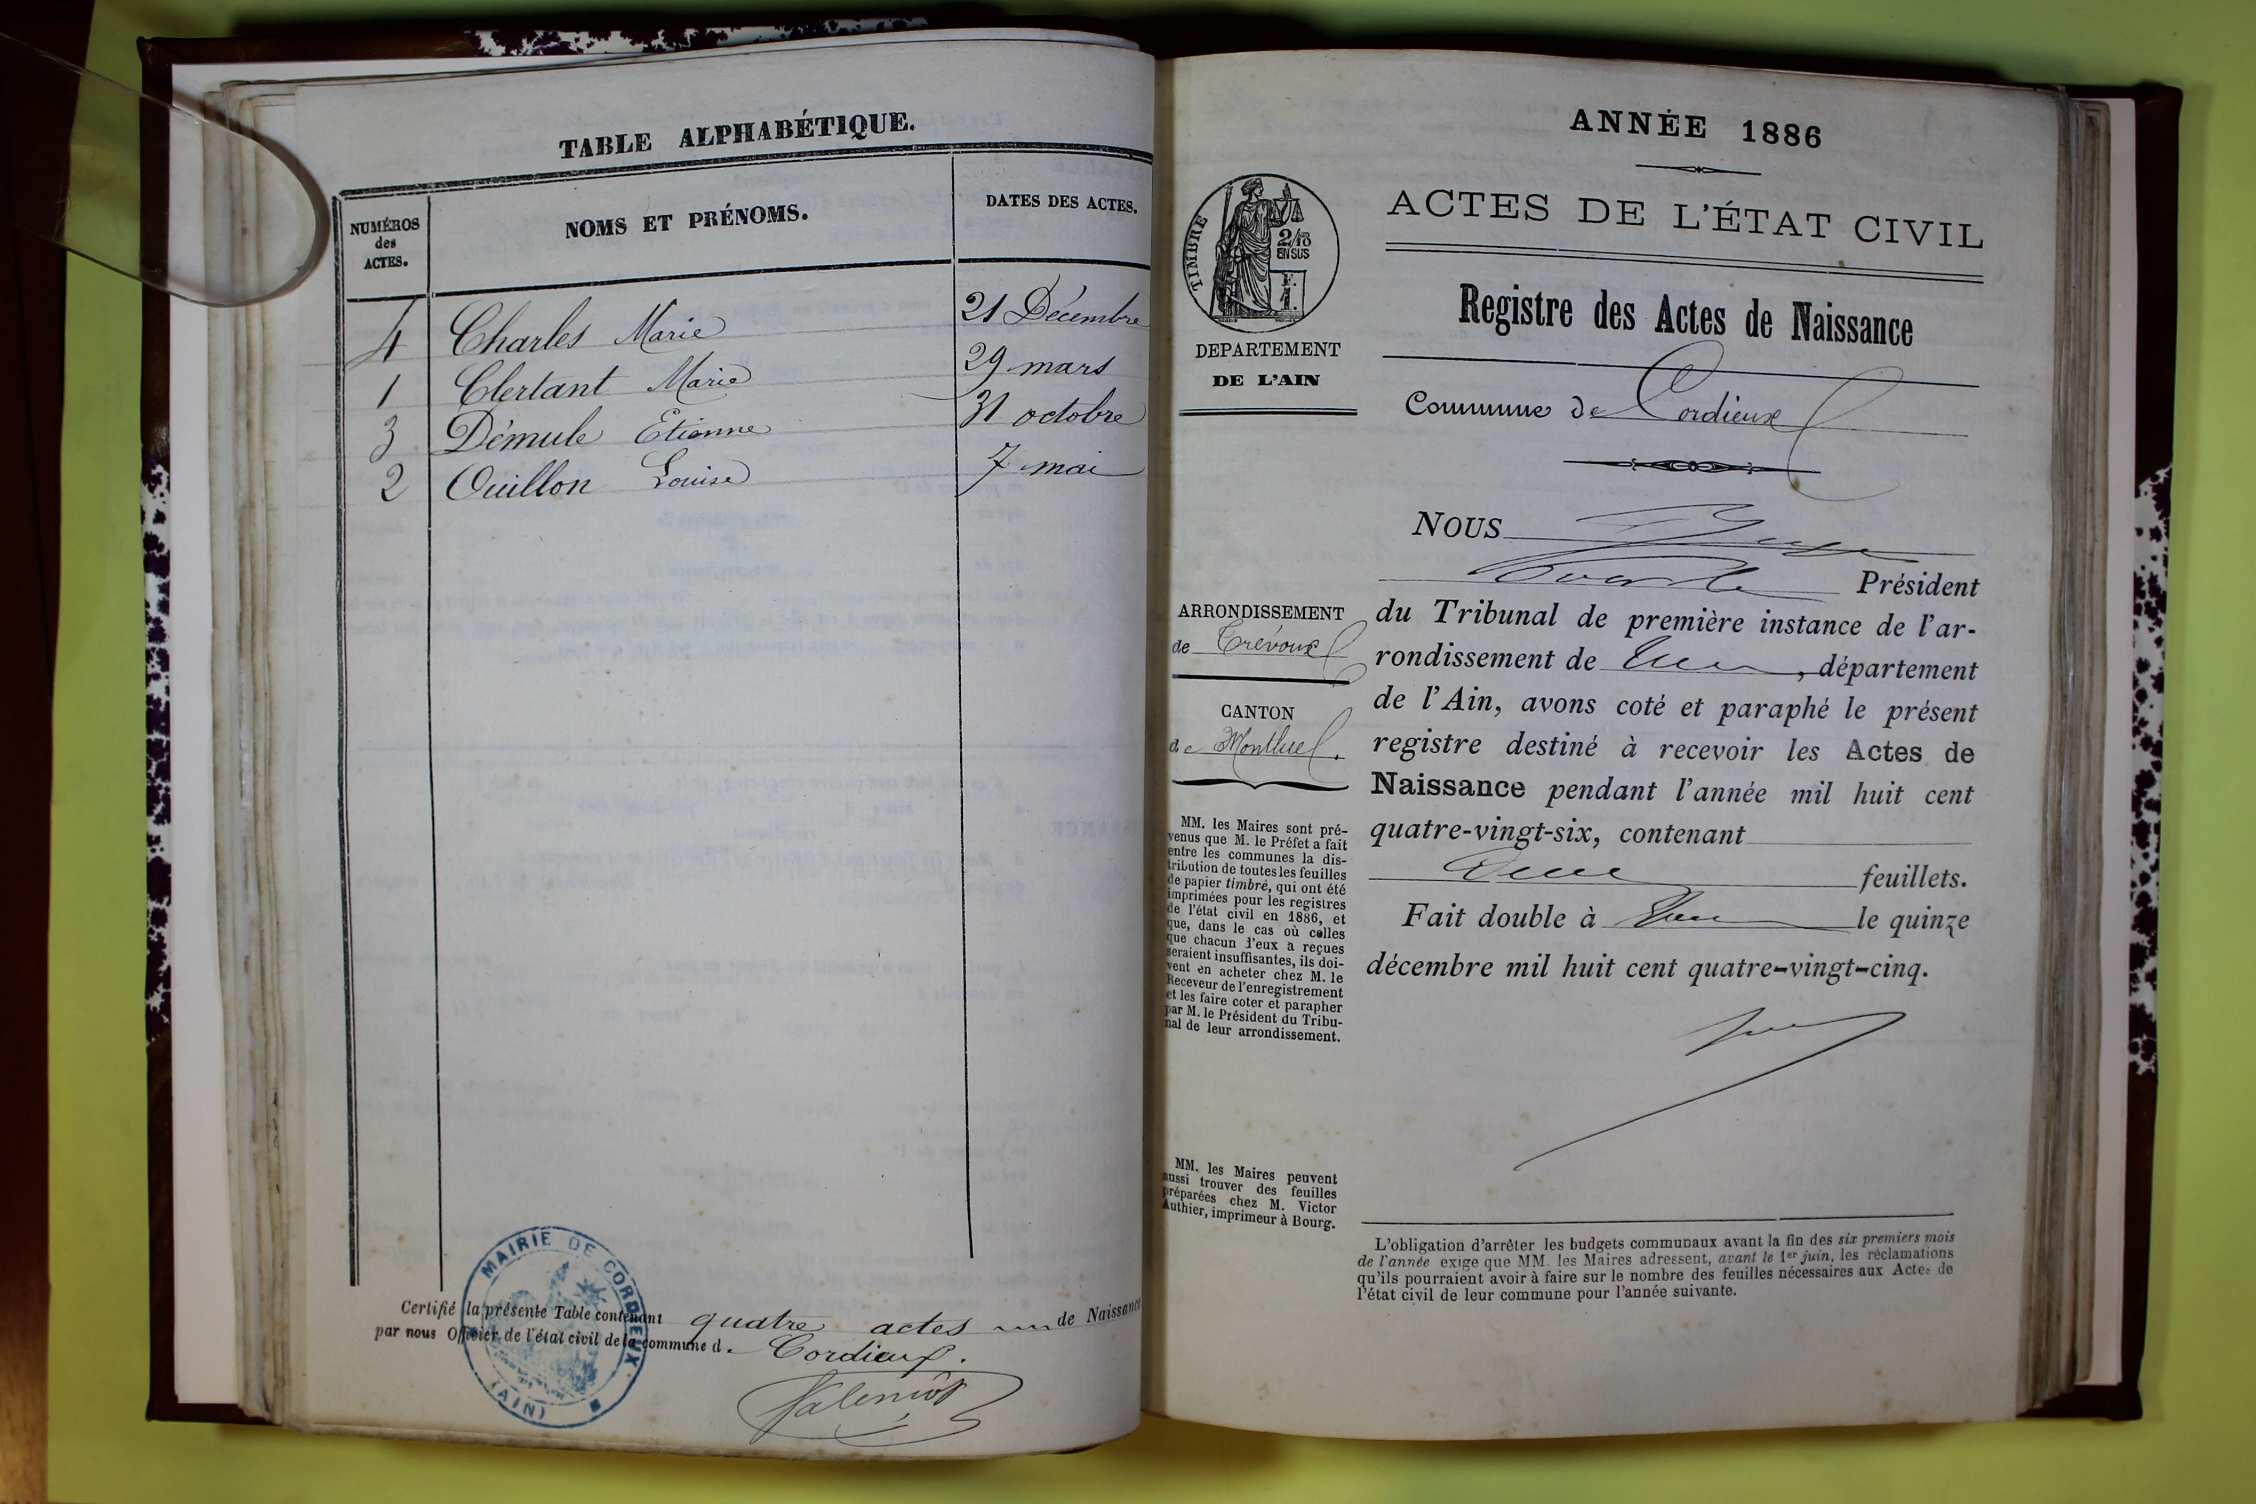 TABLE ALPHABÉTIQUE.
NUMÉROS
des
ACTES.
NOMS ET PRÉNOMS.
DATES DES ACTES.
4 Charles Marie 21 Décembre
1 Clertant Marie 29 mars
3 Démule Etienne 31 octobre
2 Ouillon Louise 7 mai
Certifié la présente Table contenant quatre actes de Naissance
par nous Officier de l'état civil de la commune d. Cordieux.
MAIRIE DE CORDIEUX
(AIN)
ANNÉE 1886
ACTES DE L'ÉTAT CIVIL
TIMBRE
2/10
EN SUS
F.
1.
DEPARTEMENT
DE L'AIN
Registre des Actes de Naissance
Commune de Cordieux
NOUS
Président
ARRONDISSEMENT
de Trévoux
CANTON
de Montluel.
du Tribunal de première instance de l'ar-
rondissement de , département
de l'Ain, avons coté et paraphé le présent
registre destiné à recevoir les Actes de
Naissance pendant l'année mil huit cent
quatre-vingt-six, contenant
feuillets.
Fait double à le quinze
décembre mil huit cent quatre-vingt-cinq.
MM. les Maires sont pré-
venus que M. le Préfet a fait
entre les communes la dis-
tribution de toutes les feuilles
de papier timbré, qui ont été
imprimées pour les registres
de l'état civil en 1886, et
que, dans le cas où celles
que chacun d'eux a reçues
seraient insuffisantes, ils doi-
vent en acheter chez M. le
Receveur de l'enregistrement
et les faire coter et parapher
par M. le Président du Tribu-
nal de leur arrondissement.
MM. les Maires peuvent
aussi trouver des feuilles
préparées chez M. Victor
Authier, imprimeur à Bourg.
L'obligation d'arrêter les budgets communaux avant la fin des six premiers mois
de l'année exige que MM. les Maires adressent, avant le 1er juin, les réclamations
qu'ils pourraient avoir à faire sur le nombre des feuilles nécessaires aux Actes de
l'état civil de leur commune pour l'année suivante.